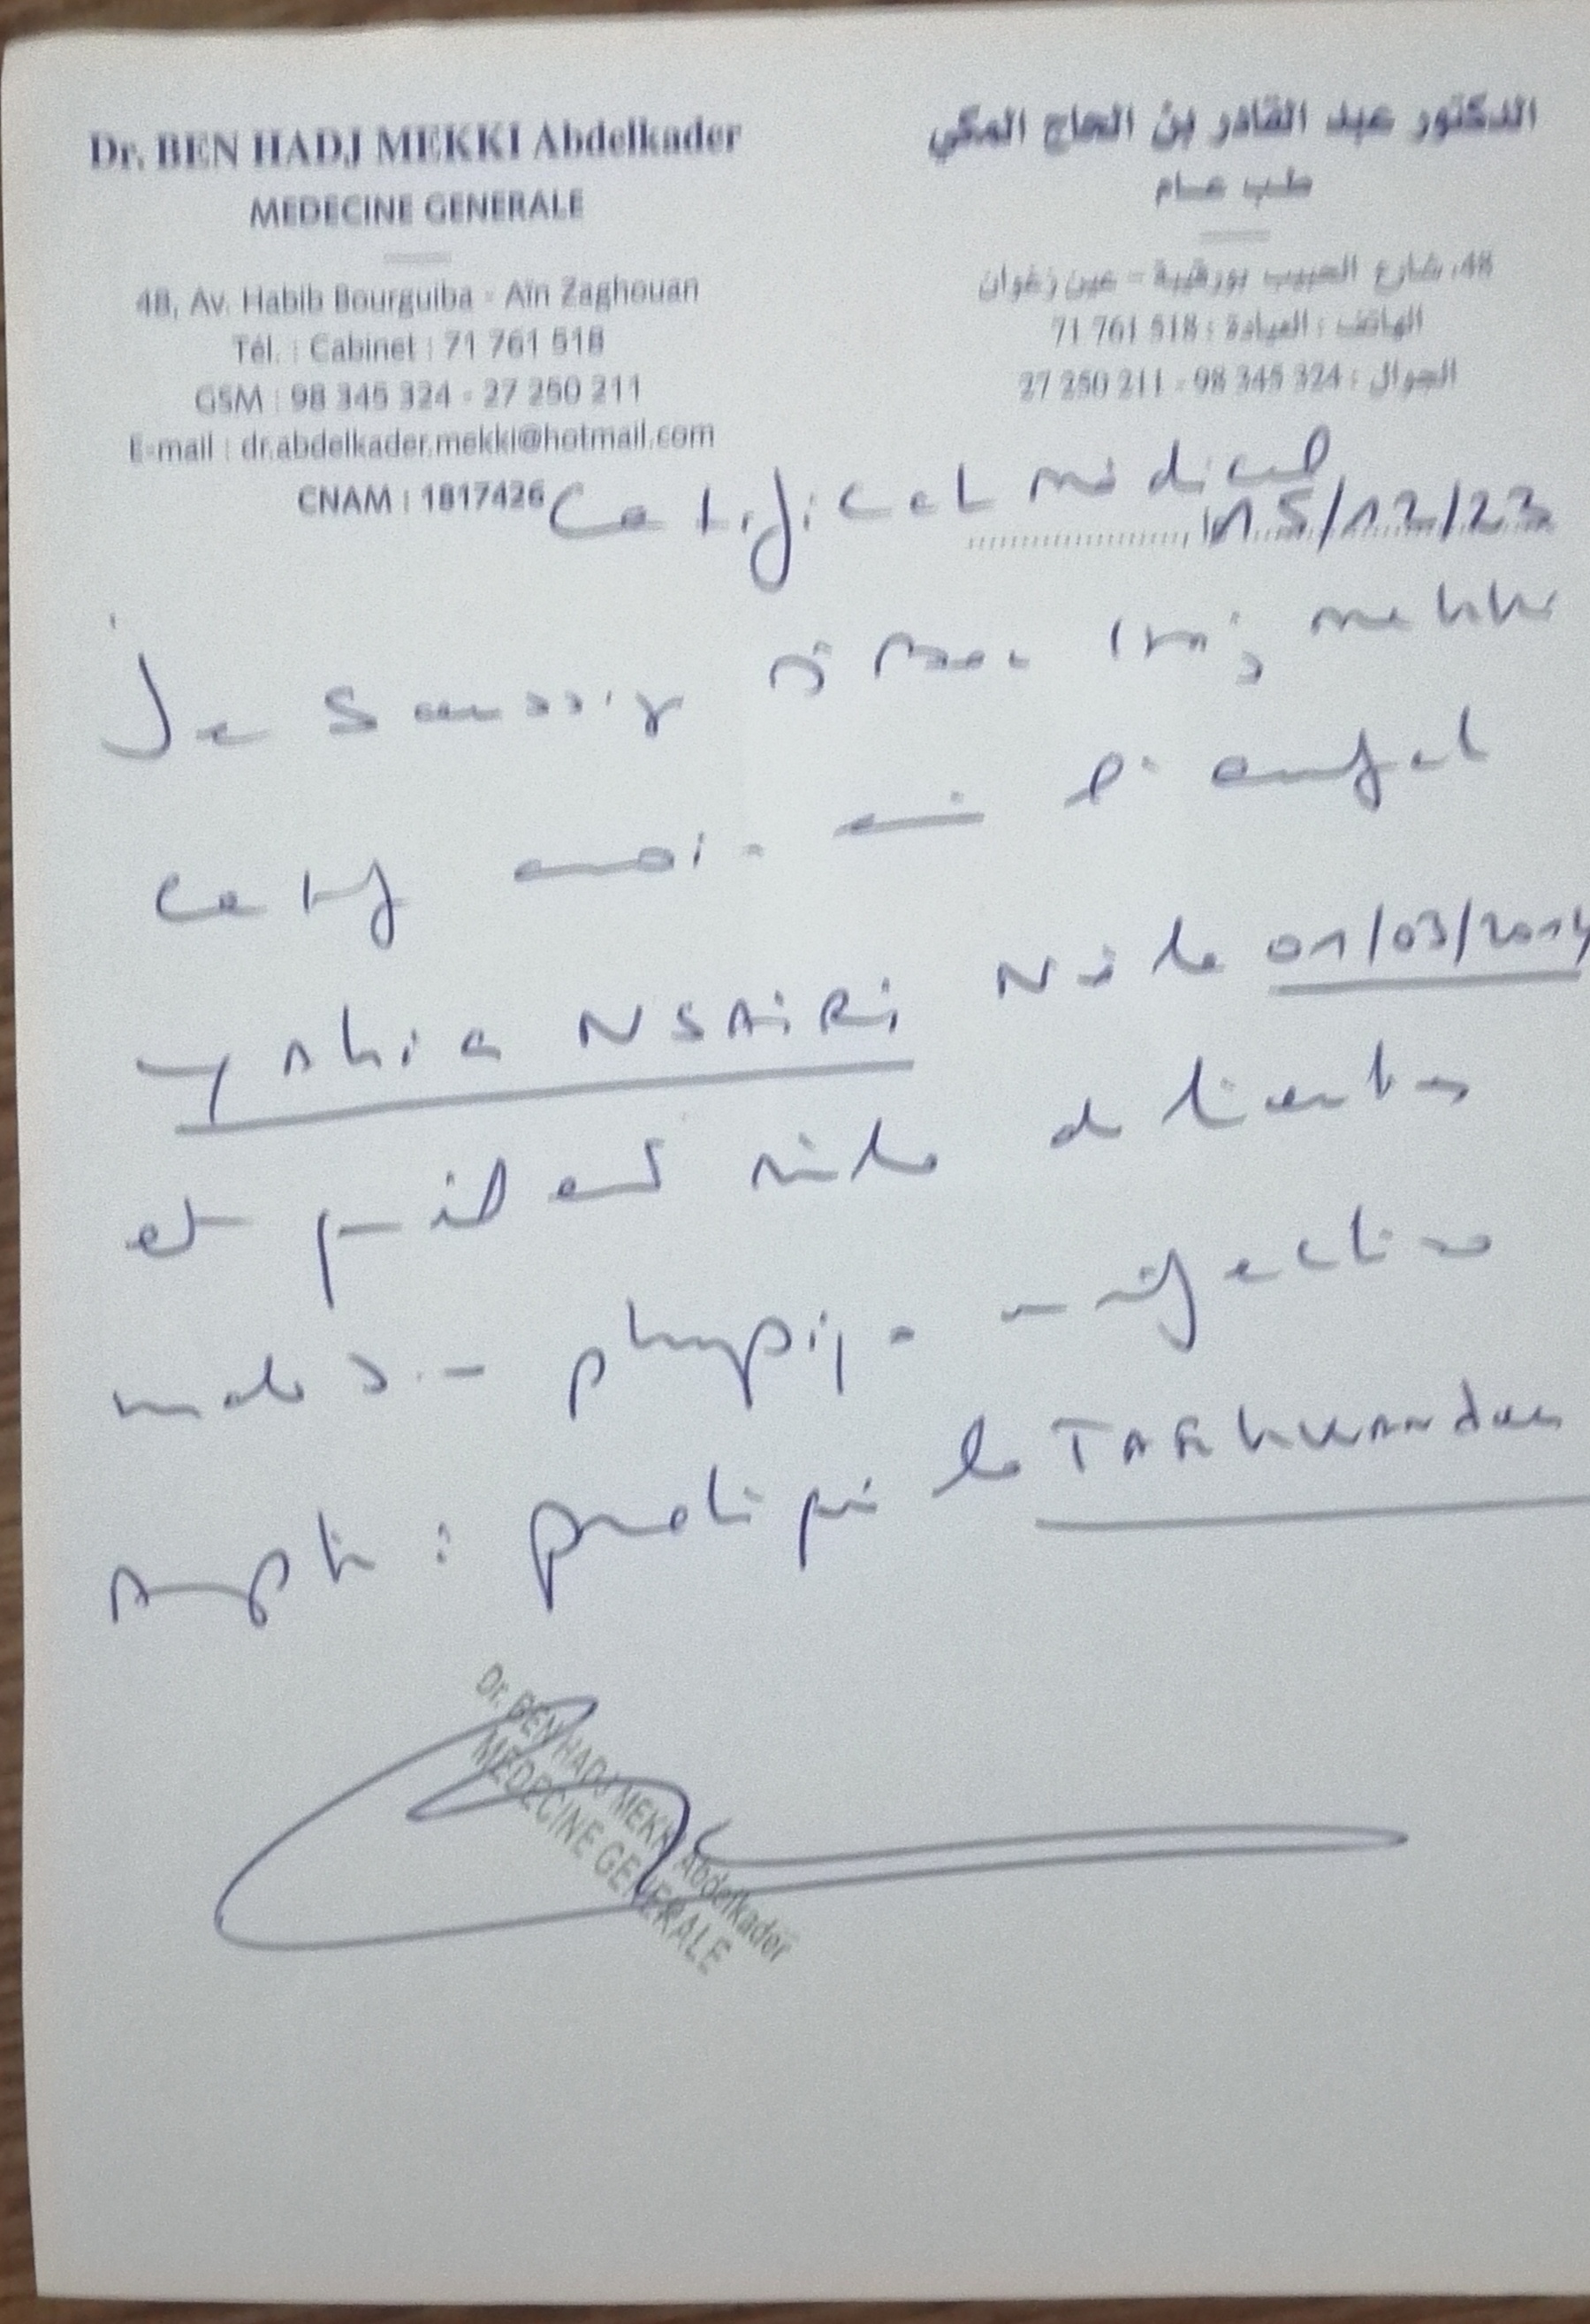 Dr. BEN HADJ MEKKI Abdelkader
MEDECINE GENERALE
48, Av. Habib Bourguiba - Aïn Zaghouan
Tél. : Cabinet : 71 761 518
GSM : 98 345 324 - 27 250 211
E-mail : dr.abdelkader.mekki@hotmail.com
CNAM : 1817426
الدكتور عبد القادر بن الحاج المكي
طب عام
48، شارع الحبيب بورقيبة - عين زغوان
الهاتف : العيادة : 71 761 518
الجوال : 98 345 324 - 27 250 211
Certificat médical
15/12/23
Je soussigné mekki
certifie avoir l'enfant
yAhia NSAIRI Né le 01/03/2014
et qu'il est de toutes
maladies physique infectieuse
Apte : pratiquer le TAEKWANdou
Dr. BEN HADJ MEKKI Abdelkader
MEDECINE GENERALE